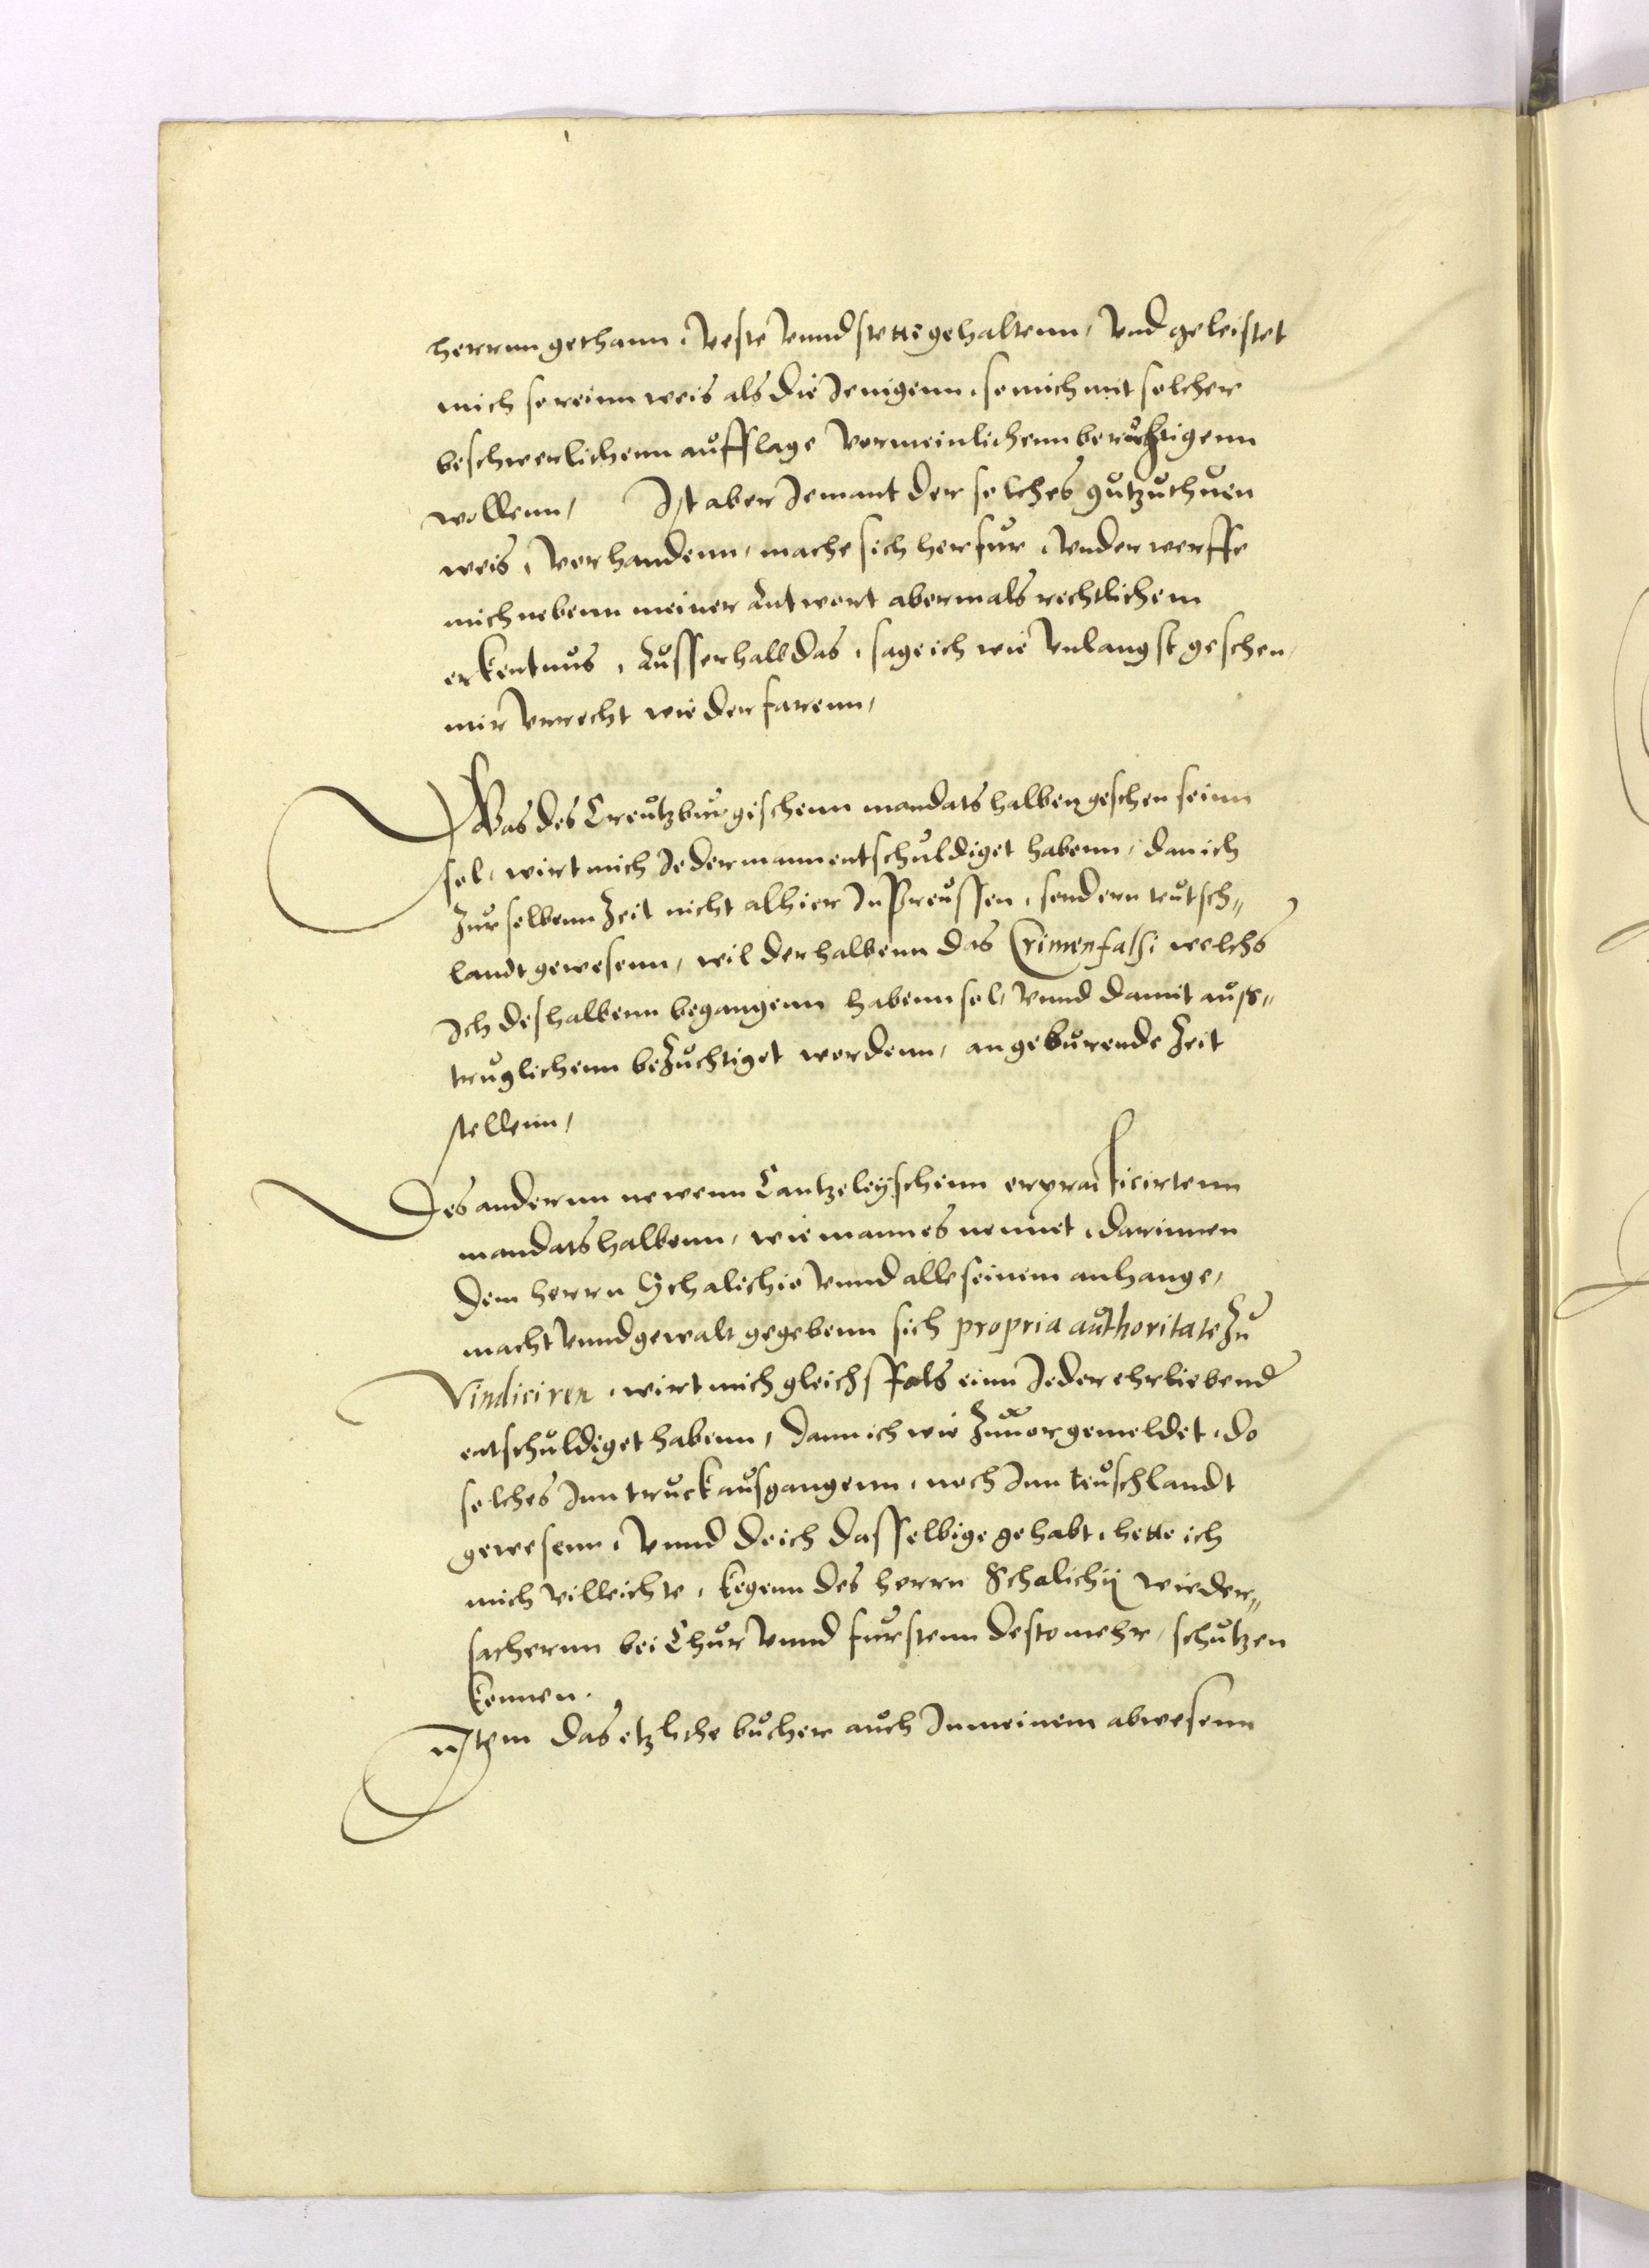 herrnn gethann, Veste Vnnd stette gehaltenn, Vnd geleistet
mich so reinn weis als die Jenigenn, so mich mit solcher
beschwerlichenn aufflage Vermeinlichenn beruchtigenn
wollenn, Ist aber Jemant der solches gutzuthuen
weis, Verhandenn, mache sich herfur, Vnderwerffe
mich nebenn meiner Antwort abermals rechtlichem
erkentnus, Ausserhalb das, sage ich wie Vnlangst geschen,
mir Vnrecht wiederfarenn,
Was des Creutzburgischenn mandats halben geschen seinn
sol, wirt mich Jedermann entschuldiget habenn, dan ich
zur selbenn Zeit nicht alhier In Preussen, sondern teutsch„
landt gewesenn, wil derhalbenn das Crimen falsi welchs
Ich deshalbenn begangenn habenn sol, Vnnd damit aus„
truglichenn bezuchtiget werdenn, an geburende Zeit
stellenn,
Des andernn newenn Cantzeleyschenn erpracticirtenn
mandats halbenn, wie mann es nennet, darinnen
dem herrn Schalichio Vnnd alle seinem anhange,
macht Vnnd gewalt gegebenn sich propria authoritate zu
Vindiciren, wirt mich gleichsfals einn Jeder ehrliebend
entschuldiget habenn, dann ich wie zuuor gemeldet, do
solches Inn truck ausgangenn, noch Inn teuschlandt
gewesenn, Vnnd do ich dasselbige gehabt, hette ich
mich villeichte, kegenn des herrn Schalichij wieder„
sachernn bei Chur Vnnd furstenn desto mehr, schutzen
konnen.
Item das etzliche bucher auch In meinem abwesenn